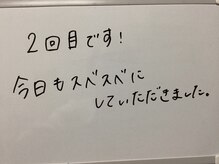 2回目です!
今日もスベスベに
していただきました。